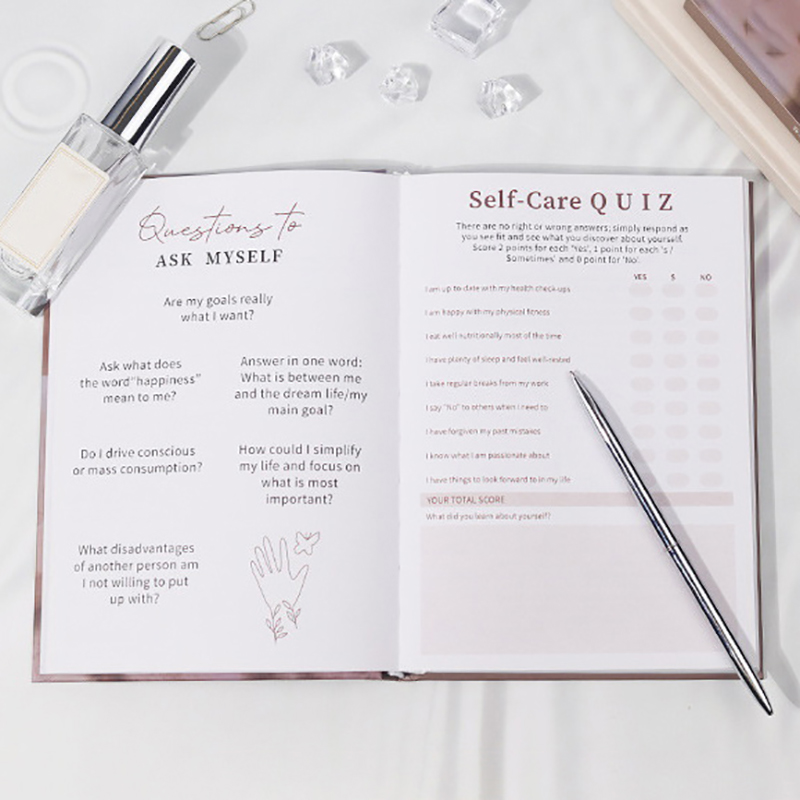 Questions to
ASK MYSELF
Are my goals really
what I want?
Ask what does
the word"happiness"
mean to me?
Answer in one word:
What is between me
and the dream life/my
main goal?
Do I drive conscious
or mass consumption?
How could I simplify
my life and focus on
what is most
important?
What disadvantages
of another person am
I not willing to put
up with?
Self-Care QUIZ
There are no right or wrong answers; simply respond as
you see fit and see what you discover about yourself.
Score 2 points for each 'Yes', 1 point for each 's /
Sometimes' and 0 point for 'No'.
YES S NO
I am up to date with my health check-ups
I am happy with my physical fitness
I eat well nutritionally most of the time
I have plenty of sleep and feel well-rested
I take regular breaks from my work
I say "No" to others when I need to
I have forgiven my past mistakes
I know what I am passionate about
I have things to look forward to in my life
YOUR TOTAL SCORE
What did you learn about yourself?